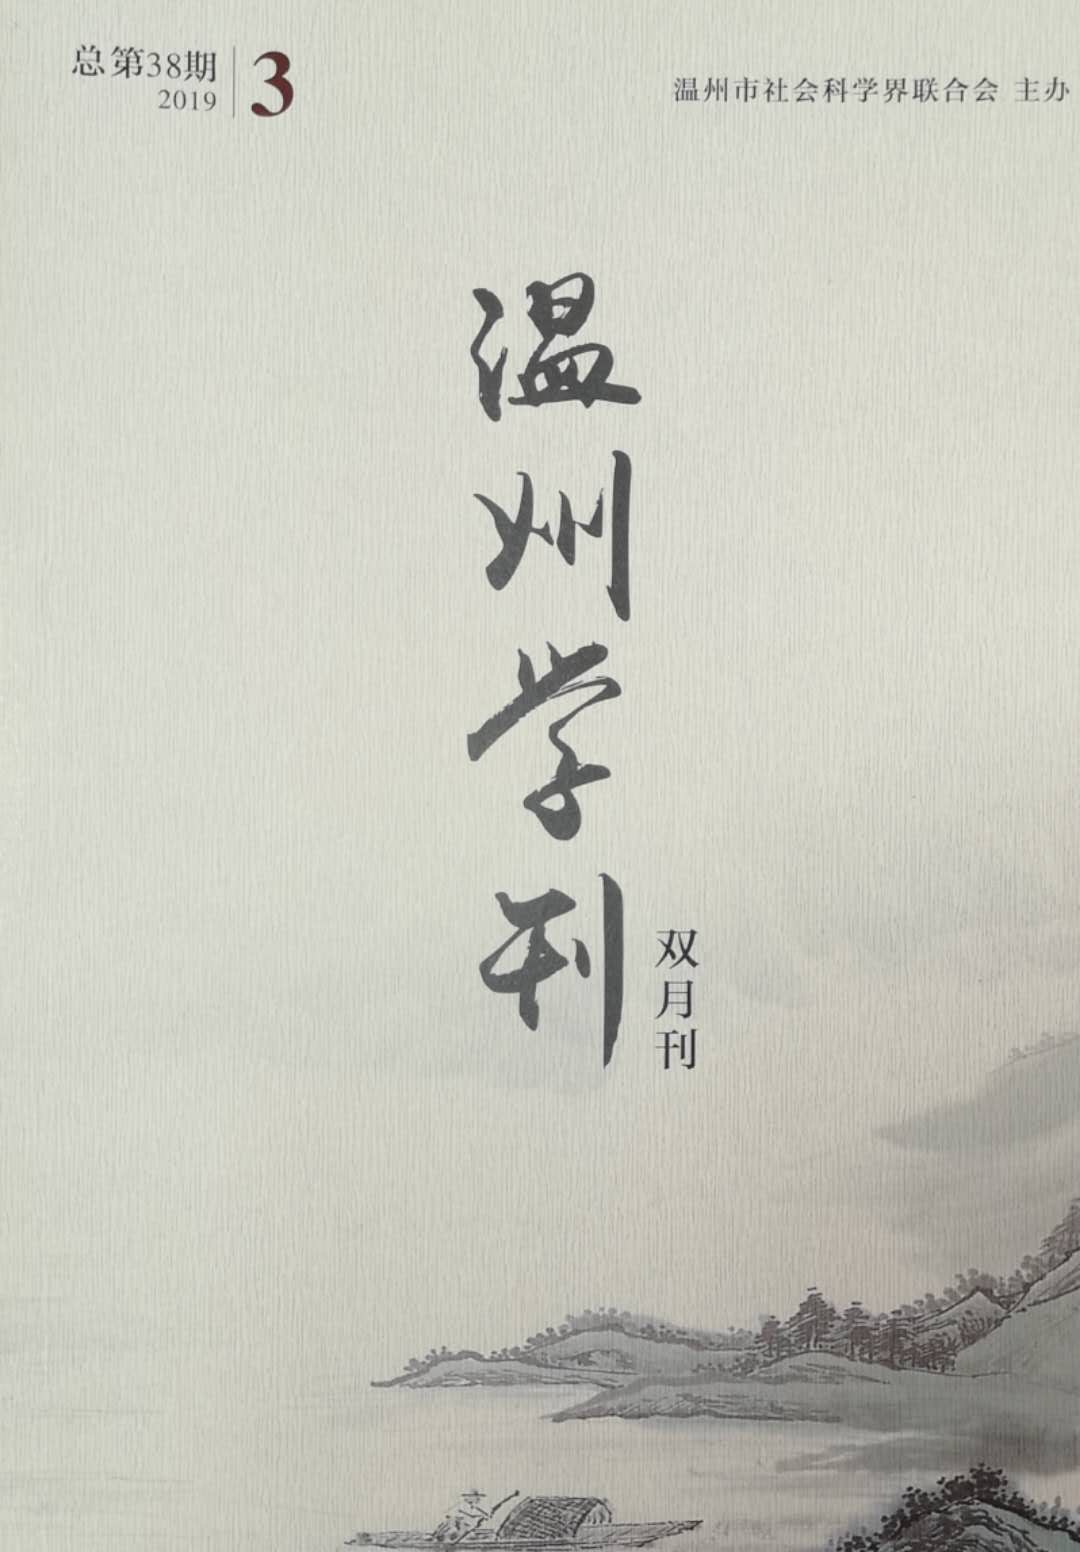 总第38期
2019
3
温州市社会科学界联合会 主办
温州学刊
双月刊